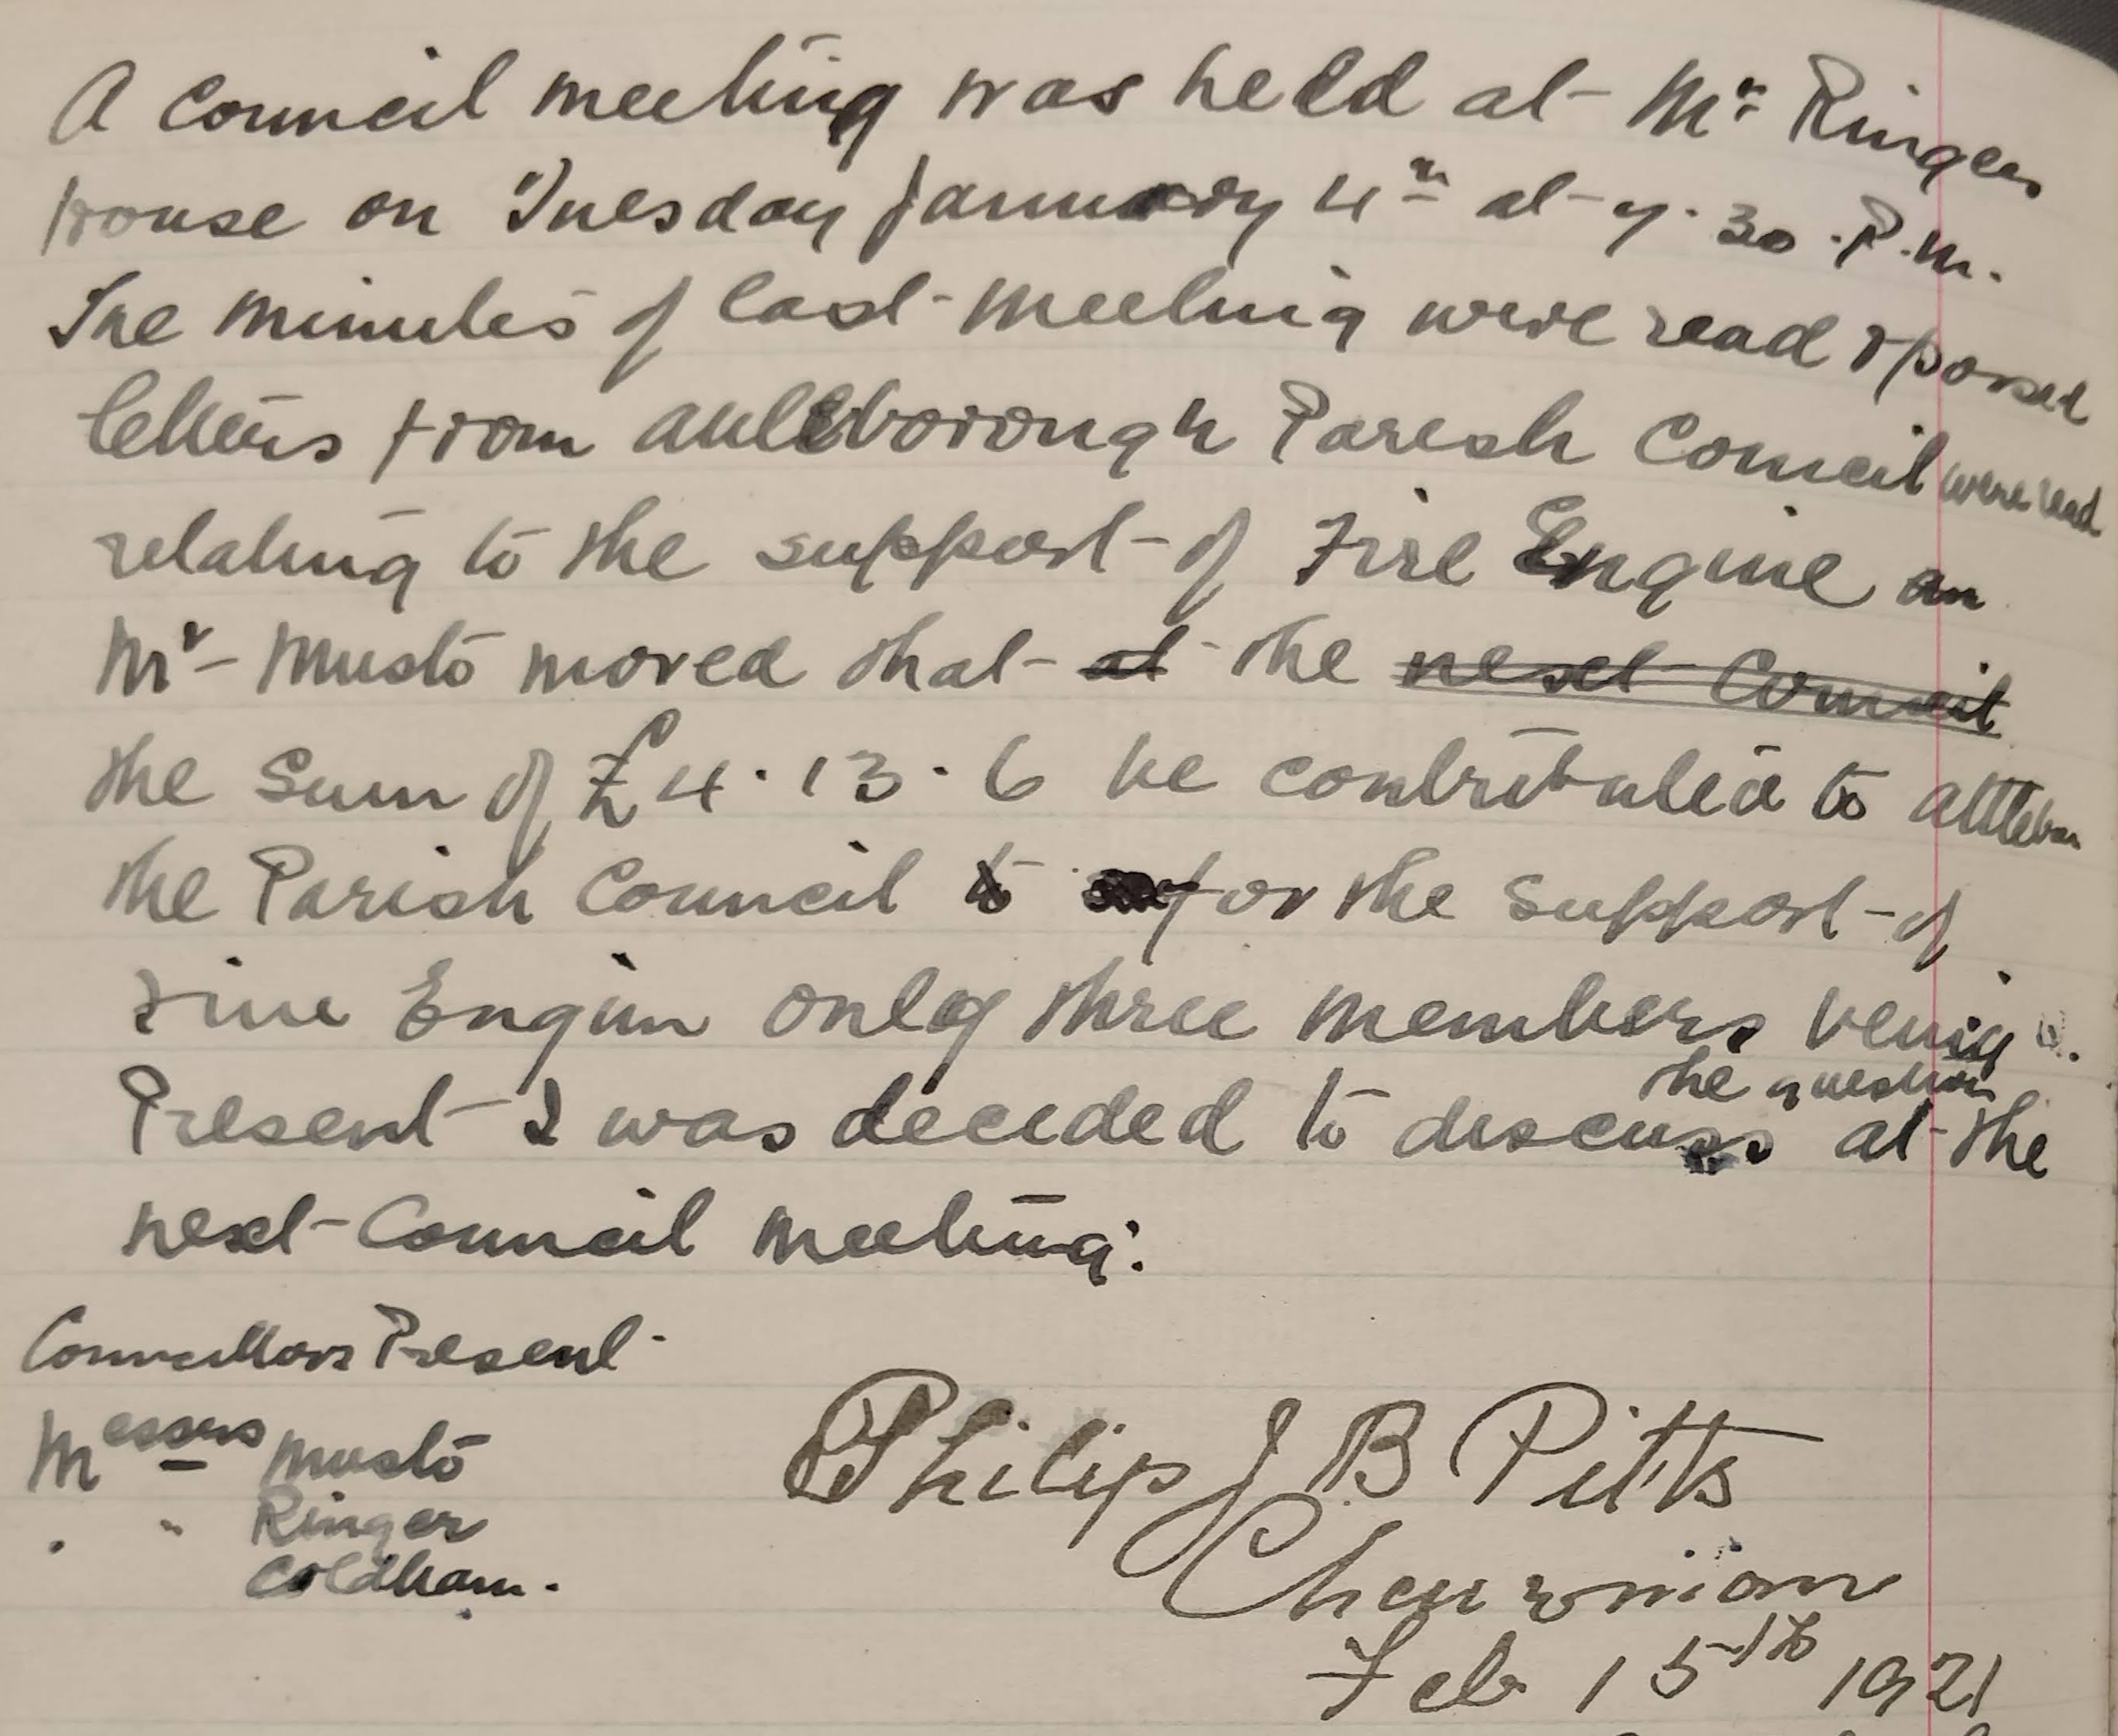 A Council meeting was held at Mr Ringers
house on Tuesday January 4th at 7.30.P.M.
The minutes of last meeting were read & passed
letters from Attleborough Parish Council were read
relating to the support of Fire Engine an
Mr Musto moved that at the next Council
the Sum of £4.13.6 be contributed to Attlebor
the Parish Council to for the Support of
Fire Engin only three members being
the question
Present I was decided to discuss at the
next Council meeting.
Councillors Present
Messrs Musto
" Ringer
Coldham.
Philip J B Pitts
Chairman
Feb 15th 1921